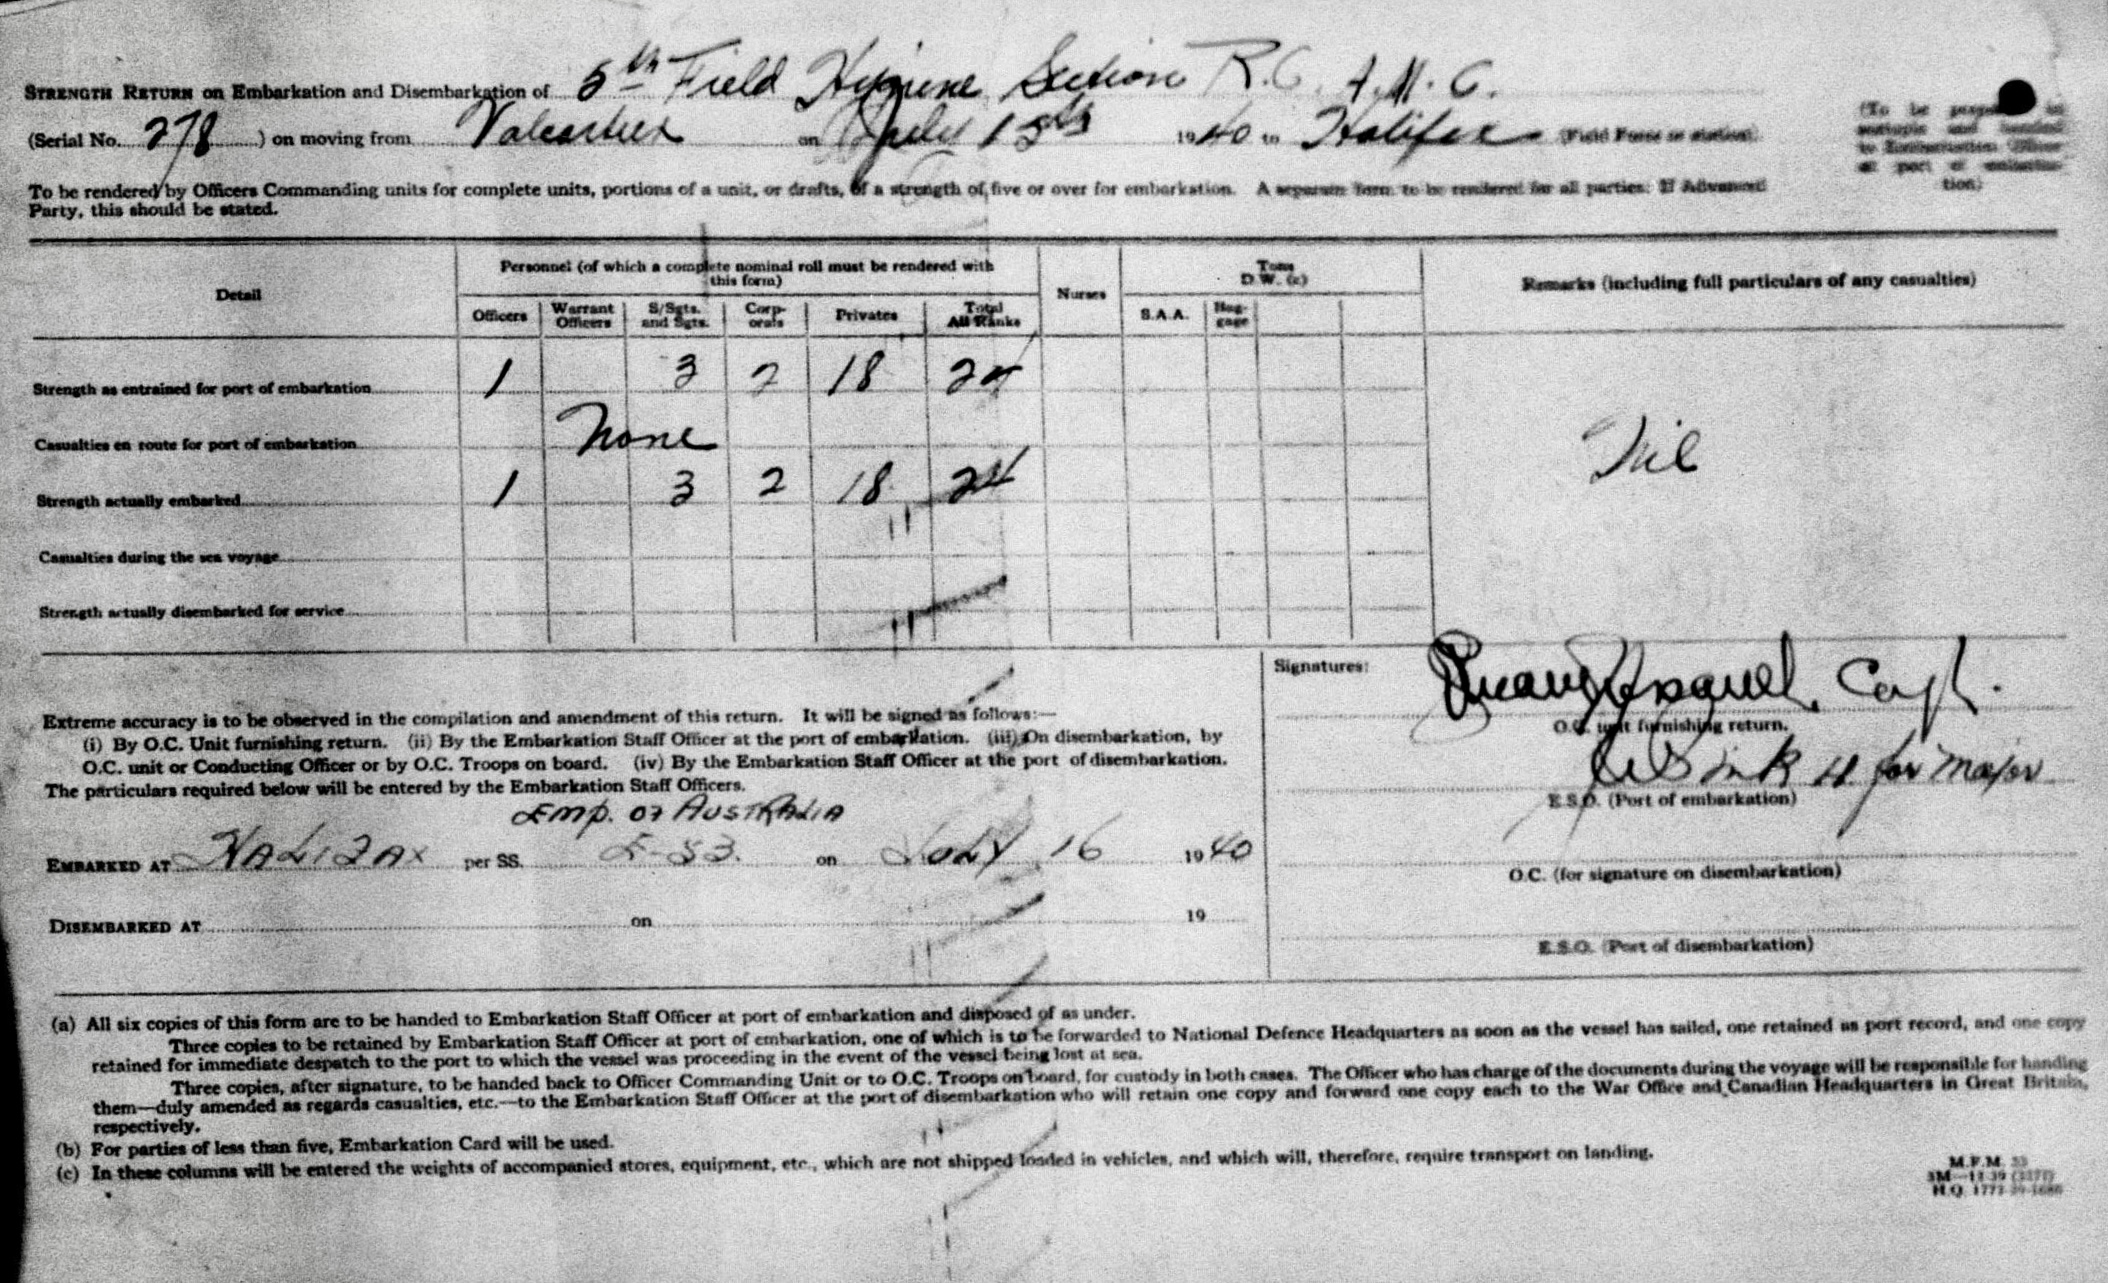 STRENGTH RETURN on Embarkation and Disembarkation of 5th Field Hygiene Section R.C.A.M.C.
(Serial No. 278 ) on moving from Valcartier on 15th 1940 to Halifax (Field Force or station).
(To be prepared in
and handed
to Embarkation Officer
at port of embarka-
tion)
To be rendered by Officers Commanding units for complete units, portions of a unit, or drafts, of a strength of five or over for embarkation. A separate form to be rendered for all parties. If Advanced
Party, this should be stated.
Detail
Personnel (of which a complete nominal roll must be rendered with
this form)
Nurses
Tons
D.W. (c)
Remarks (including full particulars of any casualties)
Officers Warrant Officers S/Sgts. and Sgts. Corp- orals Privates Total All Ranks S.A.A. Bag- gage
Strength as entrained for port of embarkation 1 3 2 18 24
Casualties en route for port of embarkation None
Nil
Strength actually embarked 1 3 2 18 24
Casualties during the sea voyage
Strength actually disembarked for service
Signatures:
Capt.
O.C. unit furnishing return.
for Major
E.S.O. (Port of embarkation)
O.C. (for signature on disembarkation)
E.S.O. (Port of disembarkation)
Extreme accuracy is to be observed in the compilation and amendment of this return. It will be signed as follows:—
(i) By O.C. Unit furnishing return. (ii) By the Embarkation Staff Officer at the port of embarkation. (iii) On disembarkation, by
O.C. unit or Conducting Officer or by O.C. Troops on board. (iv) By the Embarkation Staff Officer at the port of disembarkation.
The particulars required below will be entered by the Embarkation Staff Officers.
EMP. OF AUSTRALIA
EMBARKED AT HALIFAX per SS. E-53. on JULY 16 1940
DISEMBARKED AT on 19
(a) All six copies of this form are to be handed to Embarkation Staff Officer at port of embarkation and disposed of as under.
Three copies to be retained by Embarkation Staff Officer at port of embarkation, one of which is to be forwarded to National Defence Headquarters as soon as the vessel has sailed, one retained as port record, and one copy
retained for immediate despatch to the port to which the vessel was proceeding in the event of the vessel being lost at sea.
Three copies, after signature, to be handed back to Officer Commanding Unit or to O.C. Troops on board, for custody in both cases. The Officer who has charge of the documents during the voyage will be responsible for handing
them—duly amended as regards casualties, etc.—to the Embarkation Staff Officer at the port of disembarkation who will retain one copy and forward one copy each to the War Office and Canadian Headquarters in Great Britain,
respectively.
(b) For parties of less than five, Embarkation Card will be used.
(c) In these columns will be entered the weights of accompanied stores, equipment, etc., which are not shipped loaded in vehicles, and which will, therefore, require transport on landing.
M.F.M. 33
H.Q.